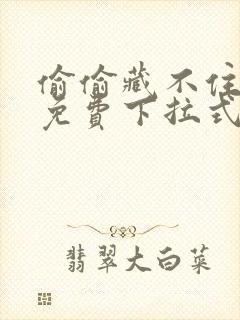 偷偷藏不住
免费下拉式
翡翠大白菜